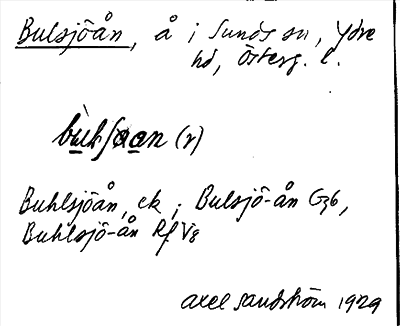 Bulsjöån, å i Sunds sn, Ydre
hd, Österg. l.
Buhlsjöån, ek, i Bulsjö-ån G36,
Buhlsjö-ån Rf V8
Axel Sandström 1929